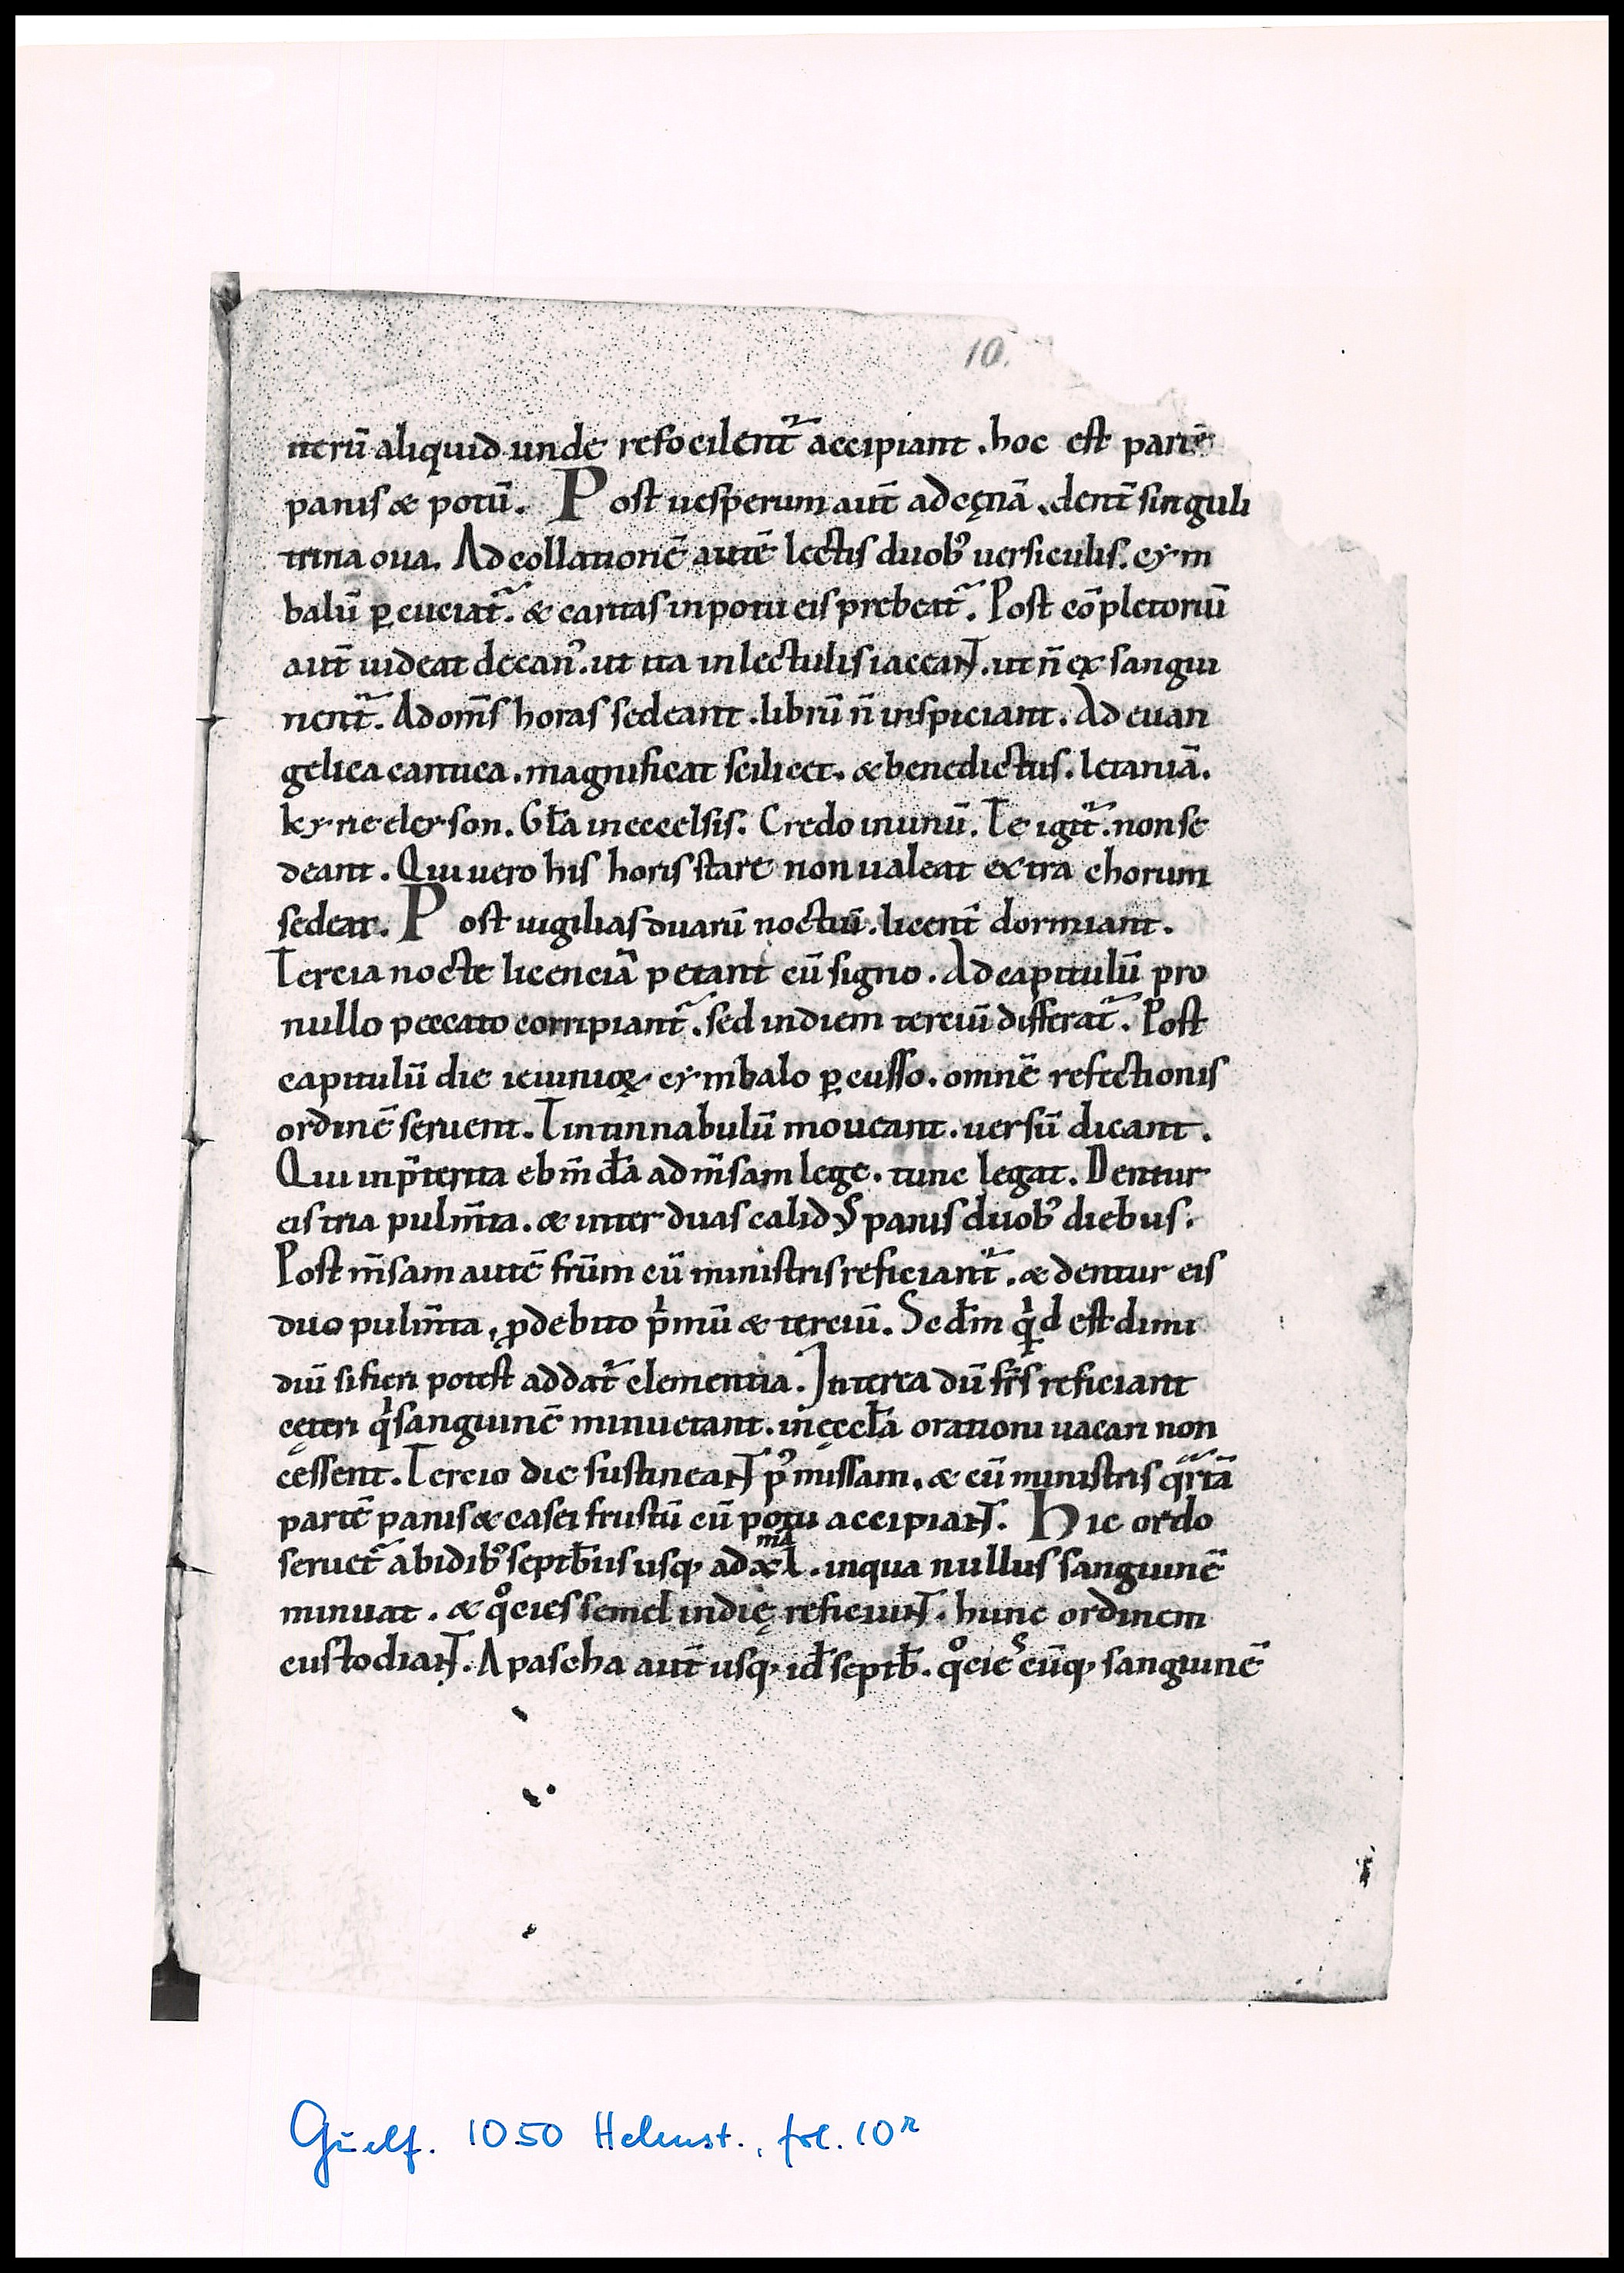 10.
nerū aliquid unde refocilent᷑ accipiant. hoc est partē
panis & potū. Post uesperum aut̄ ad cęnā. dent᷑ singuli
trina oua. Ad collationē autē lectis duobꝰ uersiculis. cym
balū ꝑcuciat᷑. & caritas in potu eis prebeat᷑. Post cōpletoriū
aut̄ uideat decanꝰ. ut ita in lectulis iaceant. ut n̄ ex sangui
nent᷑. Ad om̄s horas sedeant. librū n̄ inspiciant. Ad euan
gelica cantica. magnificat scilicet. & benedictus. letaniā.
kyrieeleyson. Gl̄a in eccelsis. Credo in unū. Te igit᷑. non se
deant. Qui uero his horis stare non ualeat extra chorum
sedeat. Post uigilias duarū noctiū. licent̄ dormiant.
Tercia nocte licenciā petant cū signo. Ad capitulū pro
nullo peccato corripiant᷑. sed in diem terciū differat᷑. Post
capitulū die ieiunioꝝ cymbalo ꝑcusso. omnē refectionis
ordinē seruent. Tintinnabulū moueant. uersū dicant.
Qui in p̄terita ebm̄da ad m̄sam lege. tunc legat. Dentur
eis tria pulm̄ta. & inter duas calidꝰ panis duobꝰ diebus.
Post m̄sam autē fr̄m cū ministris reficiant᷑. & dentur eis
duo pulm̄ta, ꝓ debito pͥmū & terciū. Sed̄m qͥd est dimi
diū si fieri potest addat᷑ clementia. Interea dū fr̄s reficiant
cęteri qͥ sanguinē minuerant. in ęccl̄a orationi uacari non
cessent. Tercio die sustineant pꝰ missam. & cū ministris qᷓrtā
partē panis & casei frustū cū potu accipiant. Hic ordo
seruet᷑ ab idibꝰ septēb̄us usqꝫ ad xl.ᵐᵃ in qua nullus sanguinē
minuat. & qͦcies semel in dię reficiunt. hunc ordinem
custodiant. A pascha aut̄ usqꝫ id̄ septēb̄. qͦcieˢcūqꝫ sanguinē
Guelf. 1050 Helmst., fol. 10ʳ